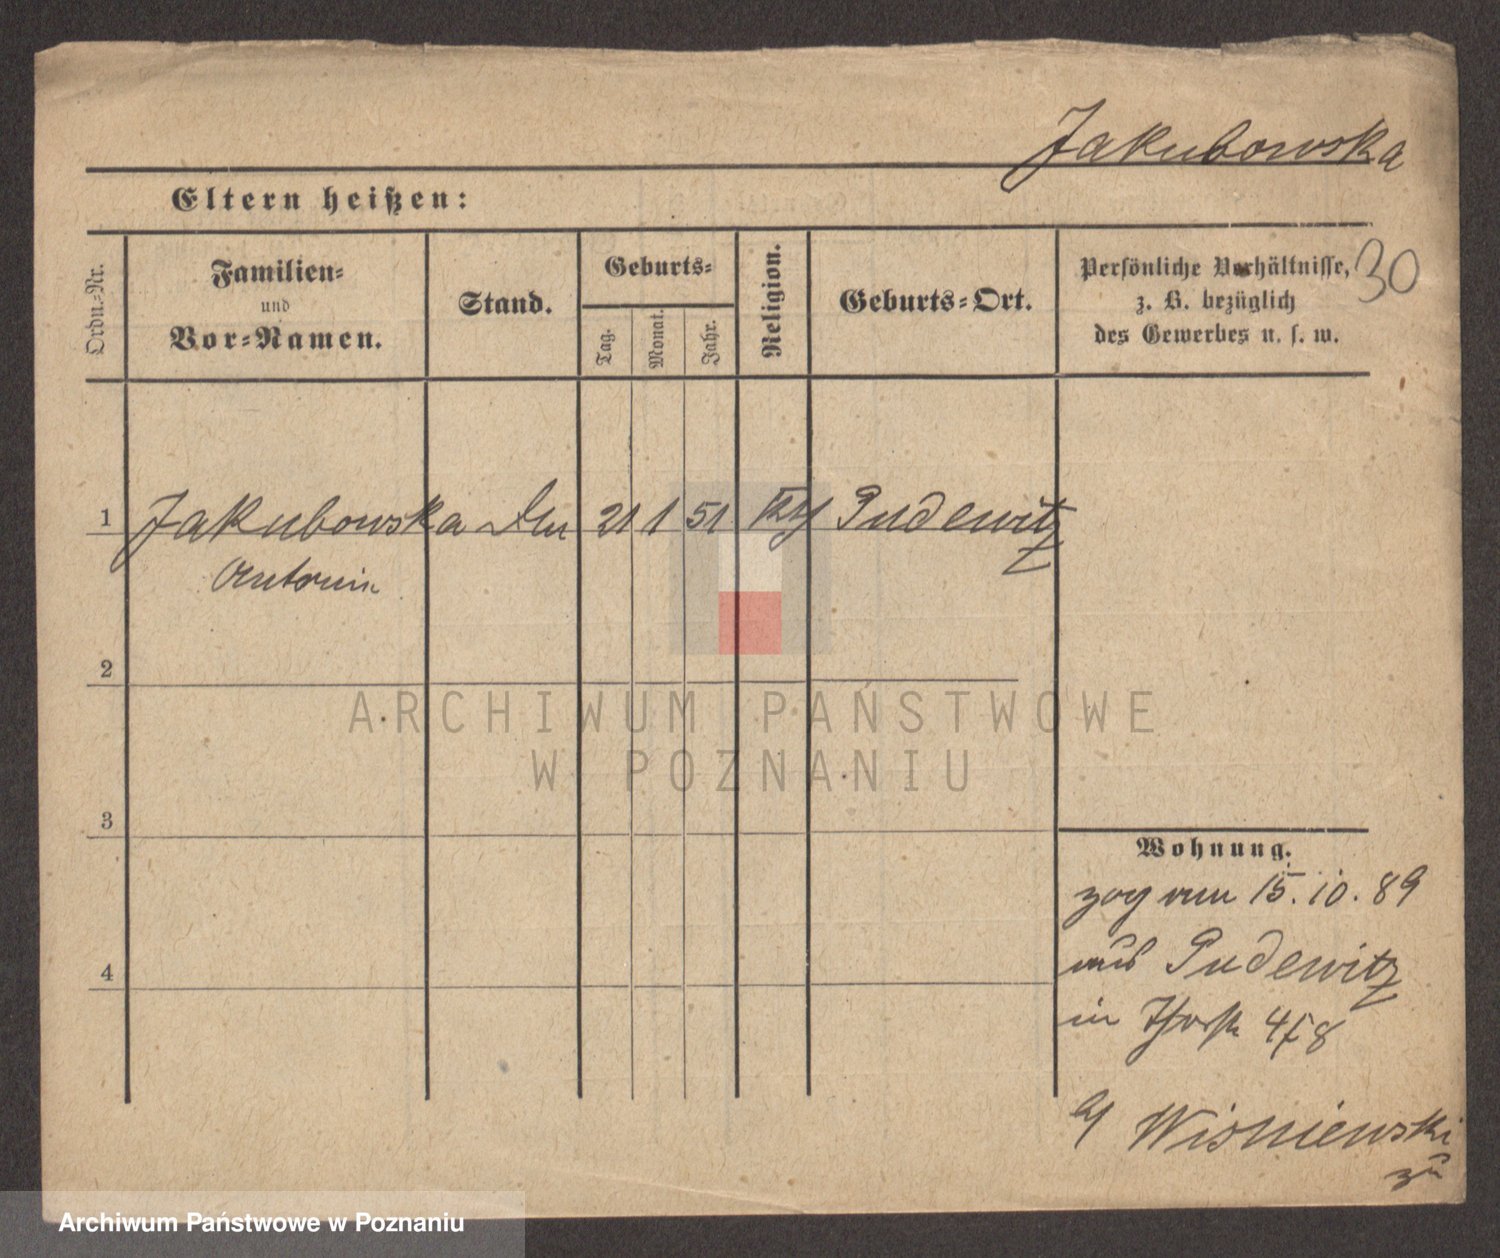 Jakubowska
Eltern heißen:
30
Ordn.-Nr.
Familien-
und
Vor-Namen.
Stand.
Geburts-
Tag.
Monat.
Jahr.
Religion.
Geburts-Ort.
Persönliche Verhältnisse,
z. B. bezüglich
des Gewerbes u. s. w.
1 Jakubowska 21 1 51 Pudewitz
Antonie
2
ARCHIWUM PAŃSTWOWE
W POZNANIU
3
Wohnung.
zog am 15. 10. 89
4
aus Pudewitz
in
Wisniewski
zu
Archiwum Państwowe w Poznaniu